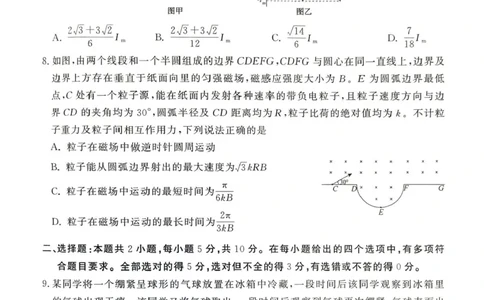 图甲
图乙
A. 2√3+3√2/6 Iₘ B. 2√3+3√2/12 Iₘ C. √14/6 Iₘ D. 7/18 Iₘ
8.如图,由两个线段和一个半圆组成的边界 CDEFG,CDFG 与圆心在同一直线上,边界及
边界上方存在垂直于纸面向里的匀强磁场,磁感应强度大小为 B。E 为圆弧边界最低
点,C 处有一个粒子源,能在纸面内发射各种速率的带负电粒子,且粒子速度方向与边
界 CD 的夹角均为 30°,圆弧半径及 CD 距离均为 R,粒子比荷的绝对值均为 k。不计粒
子重力及粒子间相互作用力,下列说法正确的是
A. 粒子在磁场中做逆时针圆周运动
B. 粒子能从圆弧边界射出的最大速度为√3kRB
C. 粒子在磁场中运动的最短时间为π/6kB
D. 粒子在磁场中运动的最长时间为2π/3kB
30°
C D F G
E
二、选择题:本题共 2 小题,每小题 5 分,共 10 分。在每小题给出的四个选项中,有多项符
合题目要求。全部选对的得 5 分,选对但不全的得 3 分,有选错或不答的得 0 分。
9.某同学将一个绷紧呈球形的气球放置在冰箱中冷藏,一段时间后该同学观察到冰箱里